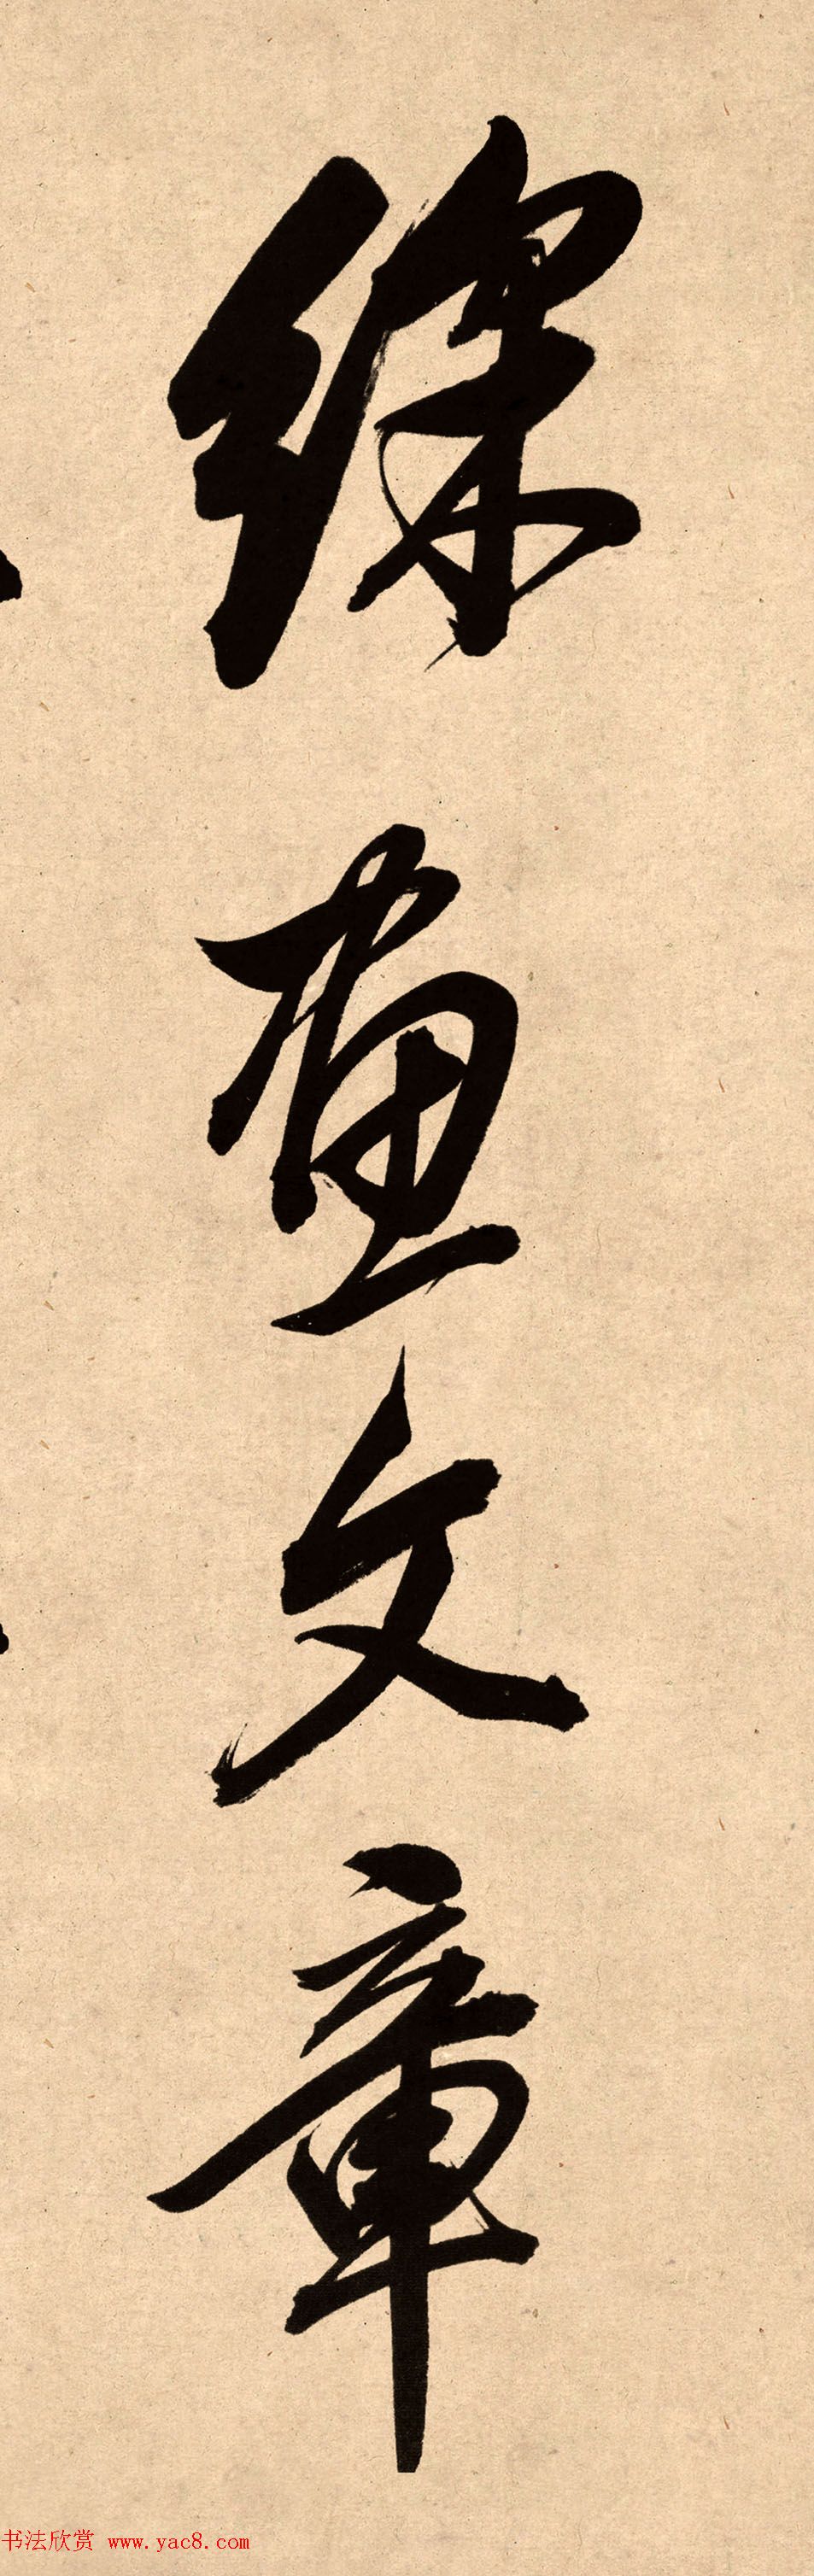 綵画文章
书法欣赏 www.yac8.com